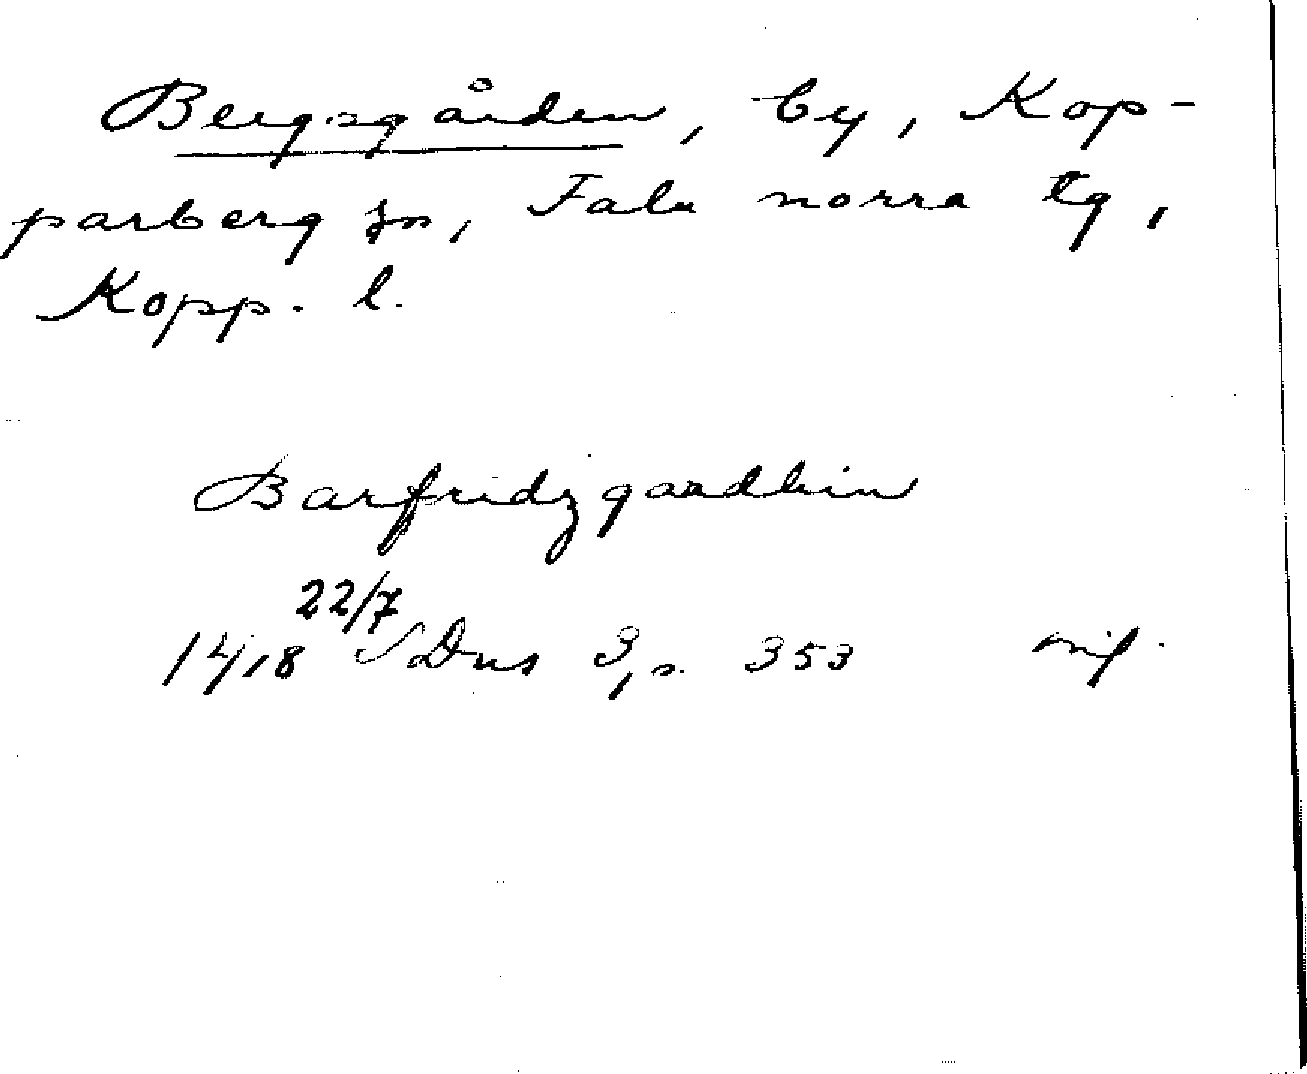 Bergsgården, by, Kop-
parberg sn, Falu norra tg,
Kopp. l.
Barfridzgaardhin
22/7
1418 SDns 3, s. 353 mf.